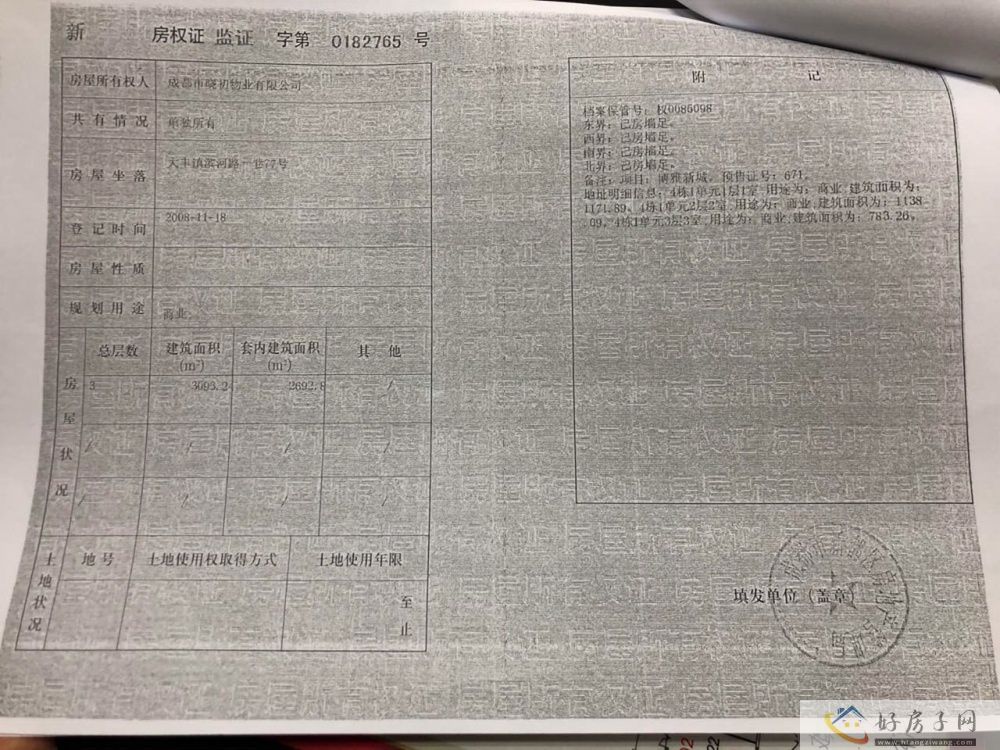 新 房权证 监证 字第 0182765 号
房屋所有权人 成都市晓初物业有限公司
共有情况 单独所有
房屋坐落 大丰镇滨河路一巷77号
登记时间 2008-11-18
房屋性质
规划用途 商业
房屋状况
总层数 建筑面积(m²) 套内建筑面积(m²) 其他
3 3093.24 2692.8 /
/ / / /
/ / / /
土地状况
地号 土地使用权取得方式 土地使用年限
至
止
附记
档案保管号：权0085098
东界：己房墙足。
西界：己房墙足。
南界：己房墙足。
北界：己房墙足。
备注：项目：博雅新城。预售证号：671。
地址明细信息：4栋1单元1层1室,用途为：商业,建筑面积为：
1171.89。4栋1单元2层2室,用途为：商业,建筑面积为：1138
.09。4栋1单元3层3室,用途为：商业,建筑面积为：783.26。
填发单位（盖章）
好房子网